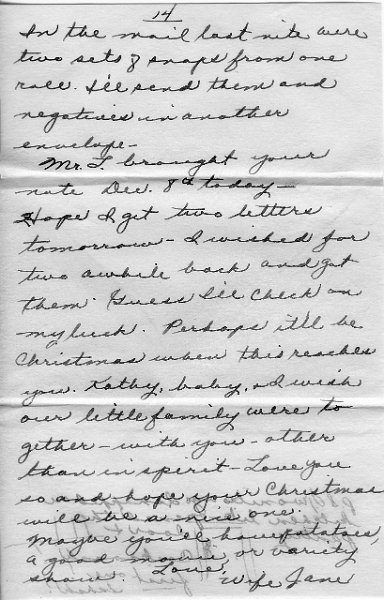 14
In the mail last nite were
two sets of snaps from one
roll. I'll send them and
negatives in another
envelope-
Mr. T. brought your
note Dec. 8th today-
Hope I get two letters
tomorrow - I wished for
two awhile back and got
them. Guess I'll check on
my luck. Perhaps it'll be
Christmas when this reaches
you. Kathy, baby, & I wish
our little family were to
gether - with you - other
than in spirit - Love you
so and hope your Christmas
will be a nice one.
Maybe you'll have potatoes,
a good movie, or varity
show. Love,
Wife Jane